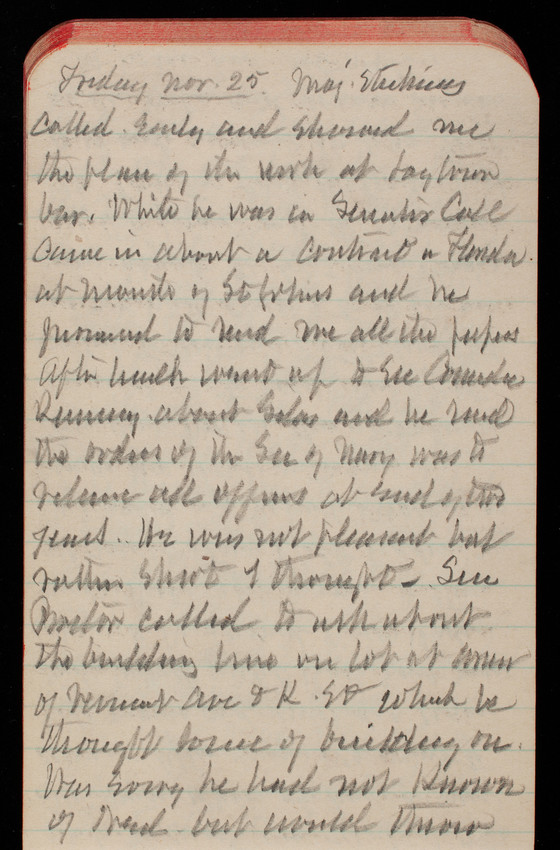 Friday Nov. 25 Maj. Stehins
called early and showed me
the plan of the work at Baytown
bar. While he was in Senator Call
came in about a contract in Florida
at mouth of St Johns and he
promised to send me all the papers
After lunch went up to see Commodore
Ramsey about and he said
the orders of the Sec of Navy was to
relieve all officers at end of two
years. He was not pleasant but
rather short I thought - Sen
Proctor called to ask about
the building line on lot at corner
of Vermont Ave & K St which he
thought some of building on.
Was sorry he had not known
of but would throw